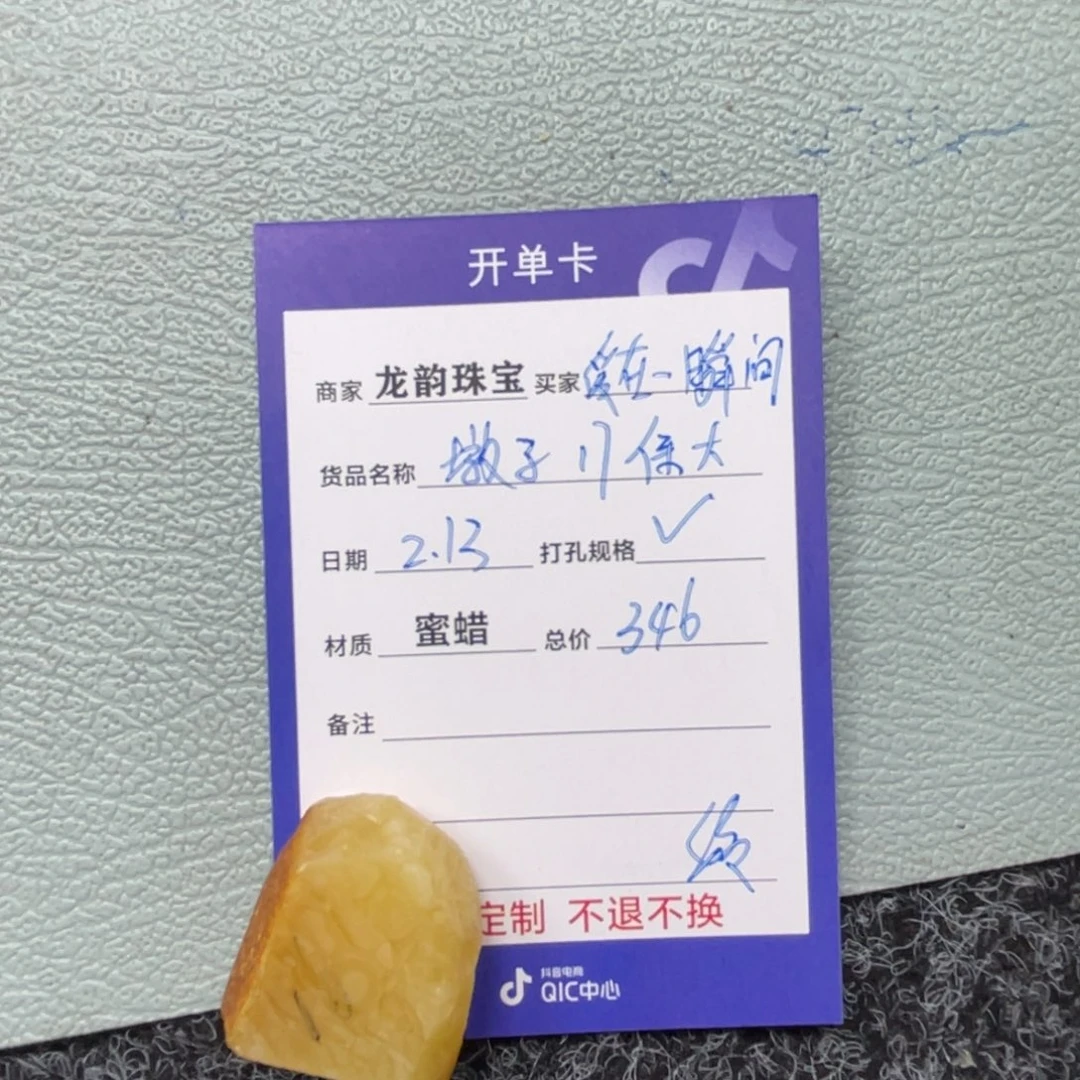 开单卡
商家 龙韵珠宝 买家 爱在一瞬间
货品名称 墩子 保大
日期 2.13 打孔规格 ✓
材质 蜜蜡 总价 346
备注
定制 不退不换
抖音电商
QIC中心